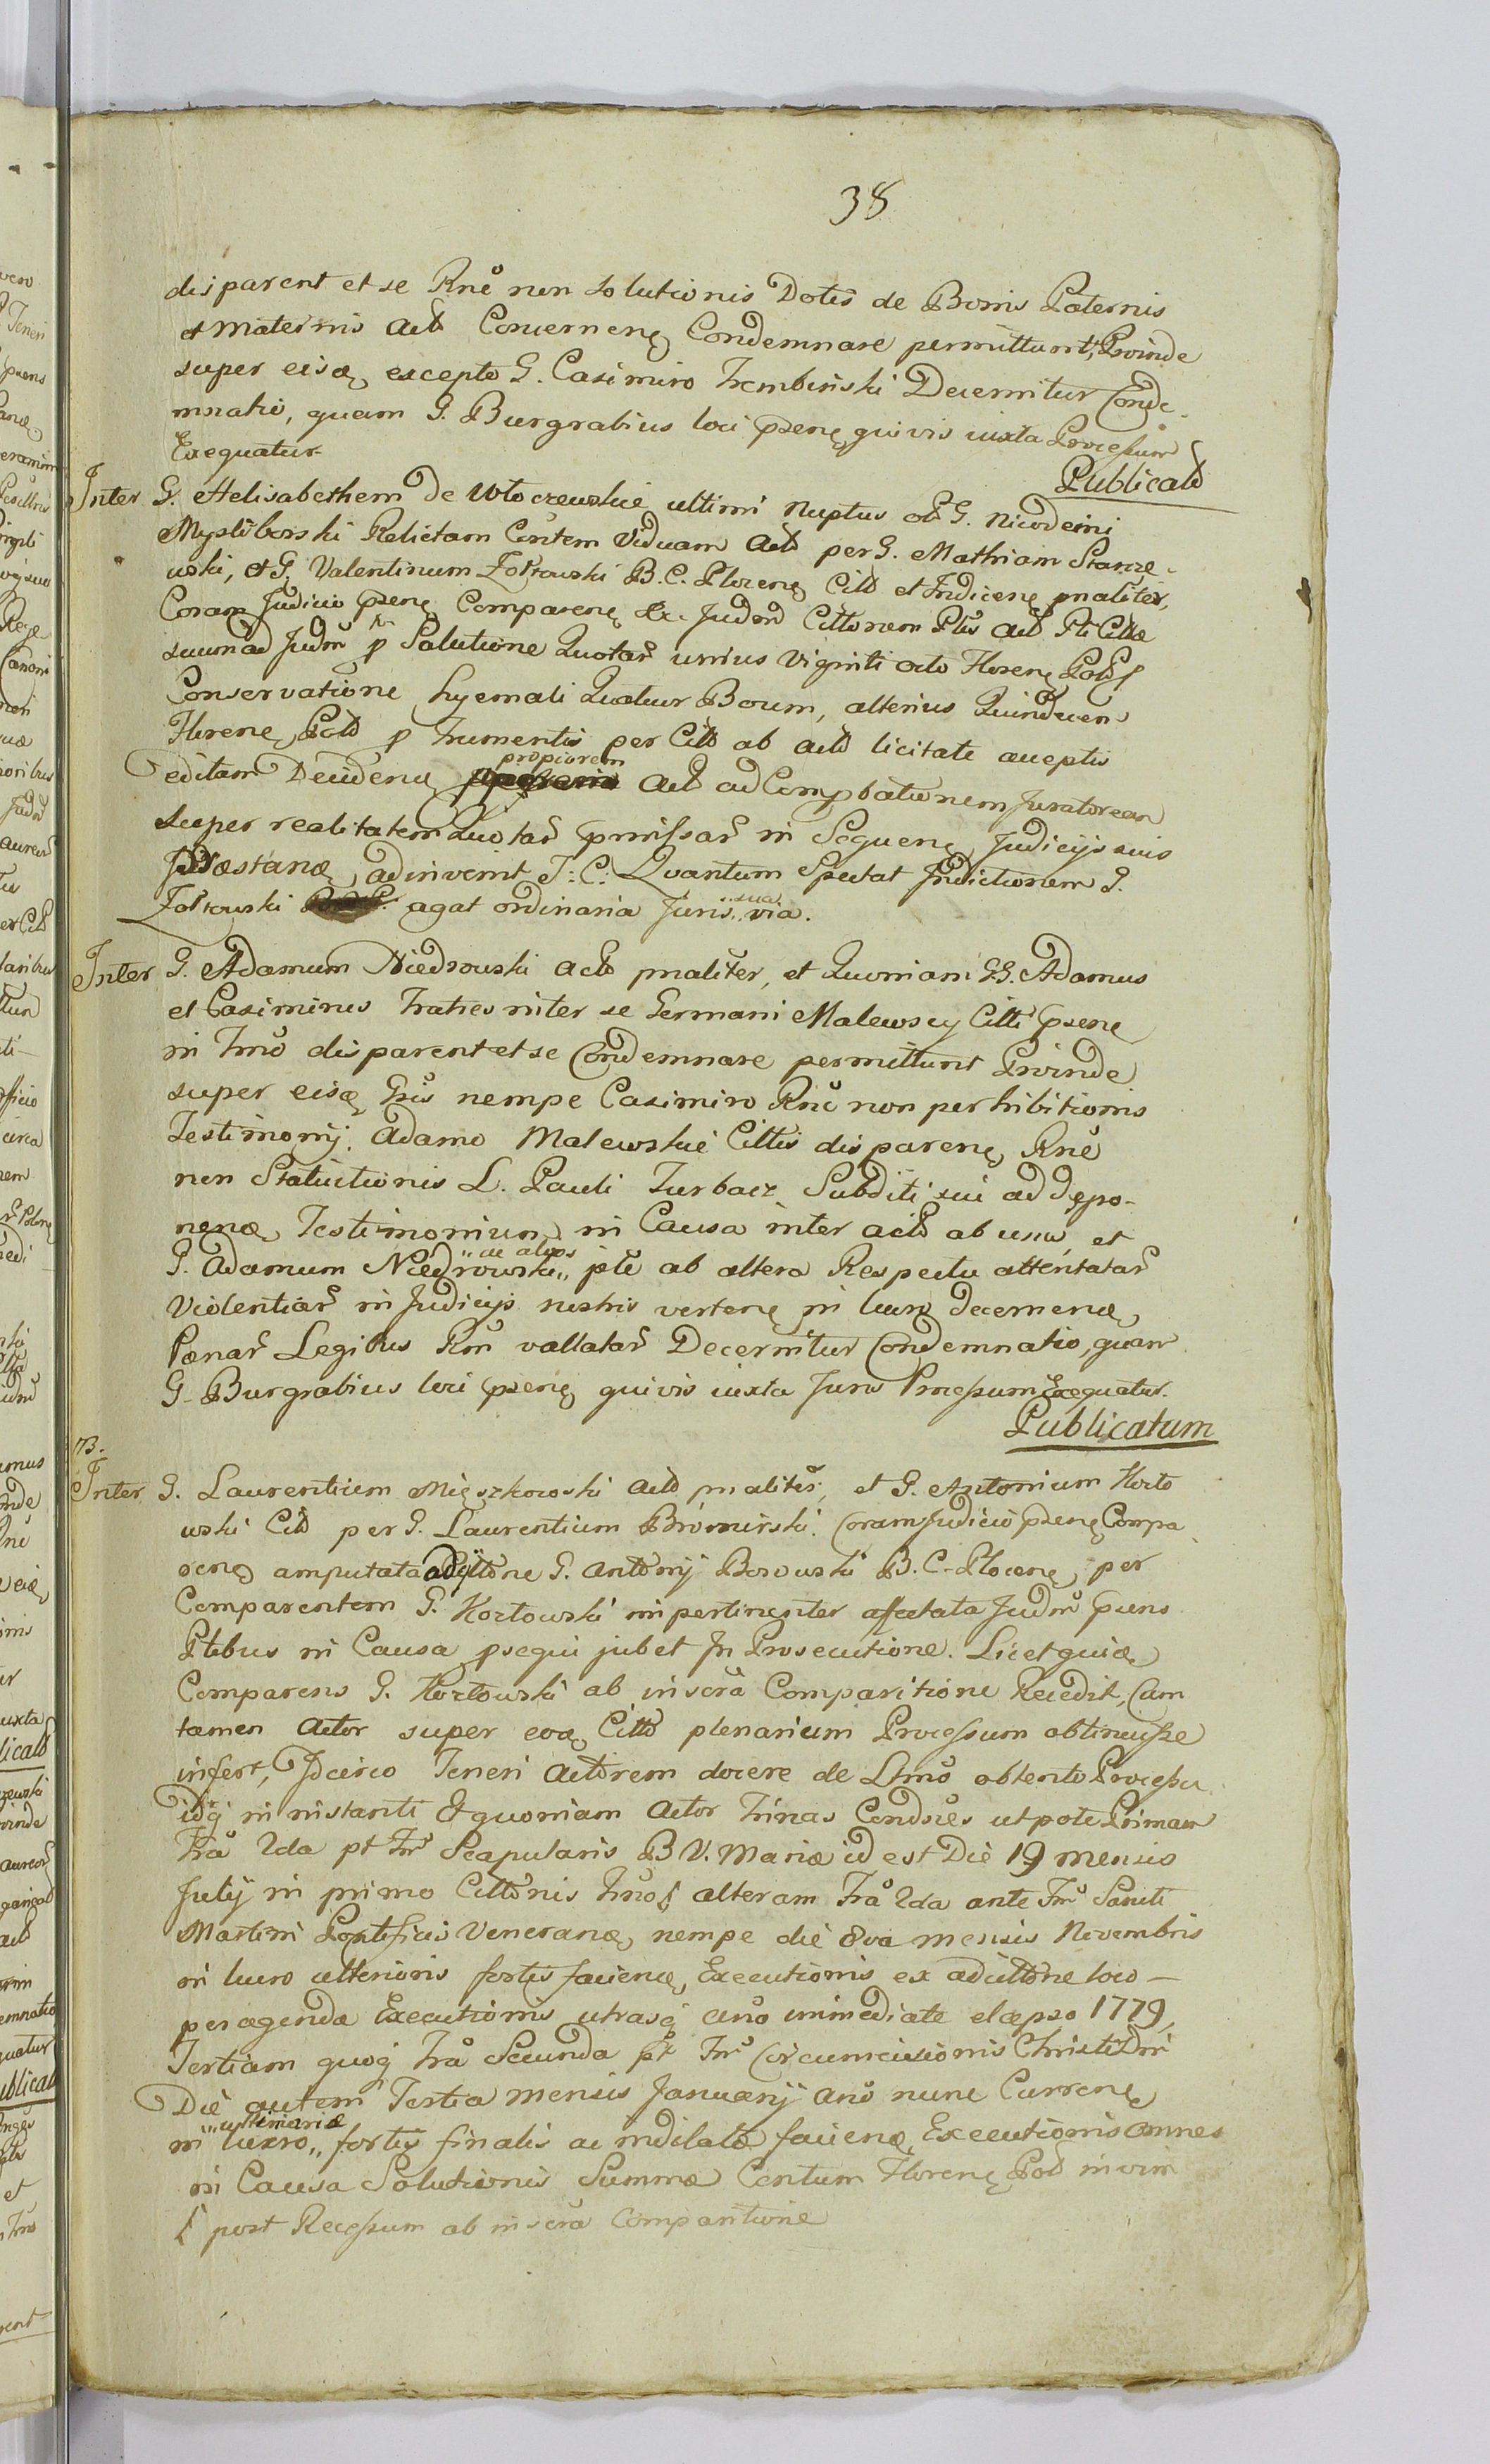 38
disparent et se Rñe non solutionis Dotis de Bonis Paternis
et Maternis Act Concernenę Condemnare permittunt, Proinde
super eisdę excepto G. Casimiro Trembinski Decernitur Conde-
mnatio, quam G. Burgrabius loci psenę quivis iuxta Processum
Exequatur
Publicatō
Inter G. Helisabethem de Włoczewskie ultimi Nuptus olī G. Nicodemi
Mystiborski Relictam Contem Viduam Act per G. Mathiam Stanze-
wski, et G. Valentinum Zołtowski B. C. Plocenę Cit et Indicenę pnaliter,
Coram Judicio psenę Comparenę &c. Judm Cittonem Ptis Act Pti Cittæ
suum ad Judm p Solutione Quotar unius viginti octo Florenę Pol p
Conservatione hyemali Quatuor Boum, alterius Quindecem
Florenę Pol p frumentis per Cit ab Act licitate acceptis
editam Decidenę propiorem Act ad Comprbationem Juratoream
super realitatem Quotar pmissar in Sequenę Judicijs suis
præstandę adinvenit I: C: Quantum Spectat Indictionem G.
Zołtowski agat ordinaria Juris sua via.
Inter G. Adamum Niedrowski Act pnaliter, et Quoniam GG. Adamus
et Casimirus fratres inter se Germani Malewscy Citti psenę
in Tmō disparent et se Condemnare permittunt Proinde
super eisdę GGis nempe Casimiro Rñe non perhibitionis
Testimonij. Adamo Malewskie Cittis disparenę Rñe
non Statutionis L. Pauli Turbacz Subditi sui ad depo-
nendę Testimonium in Causa inter Act ab una, et
G. Adamum Niedrowski „ac alios„ pte ab altera Respectu attentatar
Violentiar in Judicijs nostris vertenę in lucro decernendę
Pænar Legibus Rni vallatar Decernitur Condemnatio, quam
G. Burgrabius loci psenę quivis iuxta Juris Processum Exequatur.
Publicatum
73.
Inter G. Laurentium Mięszkowski Act pnaliter, et G. Antonium Kozło
wski Cit per G. Laurentium Bromirski. Coram Judicio psenę Compa
renę amputata adcittone G. Antonij Borowski B. C. Plocenę per
Comparentem G. Kozłowski impertinenter affectata Judm psens
Ptibus in Causa psequi jubet In Prosecutione. Licet quidę
Comparens G. Kozłowski ab inscra Comparitione Recedit, Cum
tamen Actor super eodę Citto plenarium Processum obtinuisse
infert, Idcirco Teneri Actorem docere de Ltmō obtento Processu
idq in instanti Et quoniam Actor Trinas Condnes utpote Primam
Fra 2da pt Fm Scapularis B V. Mariæ id est Die 19 mensis
Julij in primo Cittonis Tmō alteram Fra 2da ante Fm Sancti
Martini Pontificis Venerandę nempe die 8va mensis Novembris
in lucro ulterioris fortis faciendę Executionis ex adcittone loco
peragenda Executionis utrasq Anō immediate elapso 1779,
Tertiam quoq Fra Secunda pt Fm Circumcisionis Christi Dni
Die autem Tertia mensis Januarij Anō nunc Currenę
in lucro „ultimariæ„ fortis finalis ac indilatæ faciendę Executionis omnes
in Causa Solutionis Summæ Centum Florenę Pol in vim
post Recessum ab inscra Comparitione